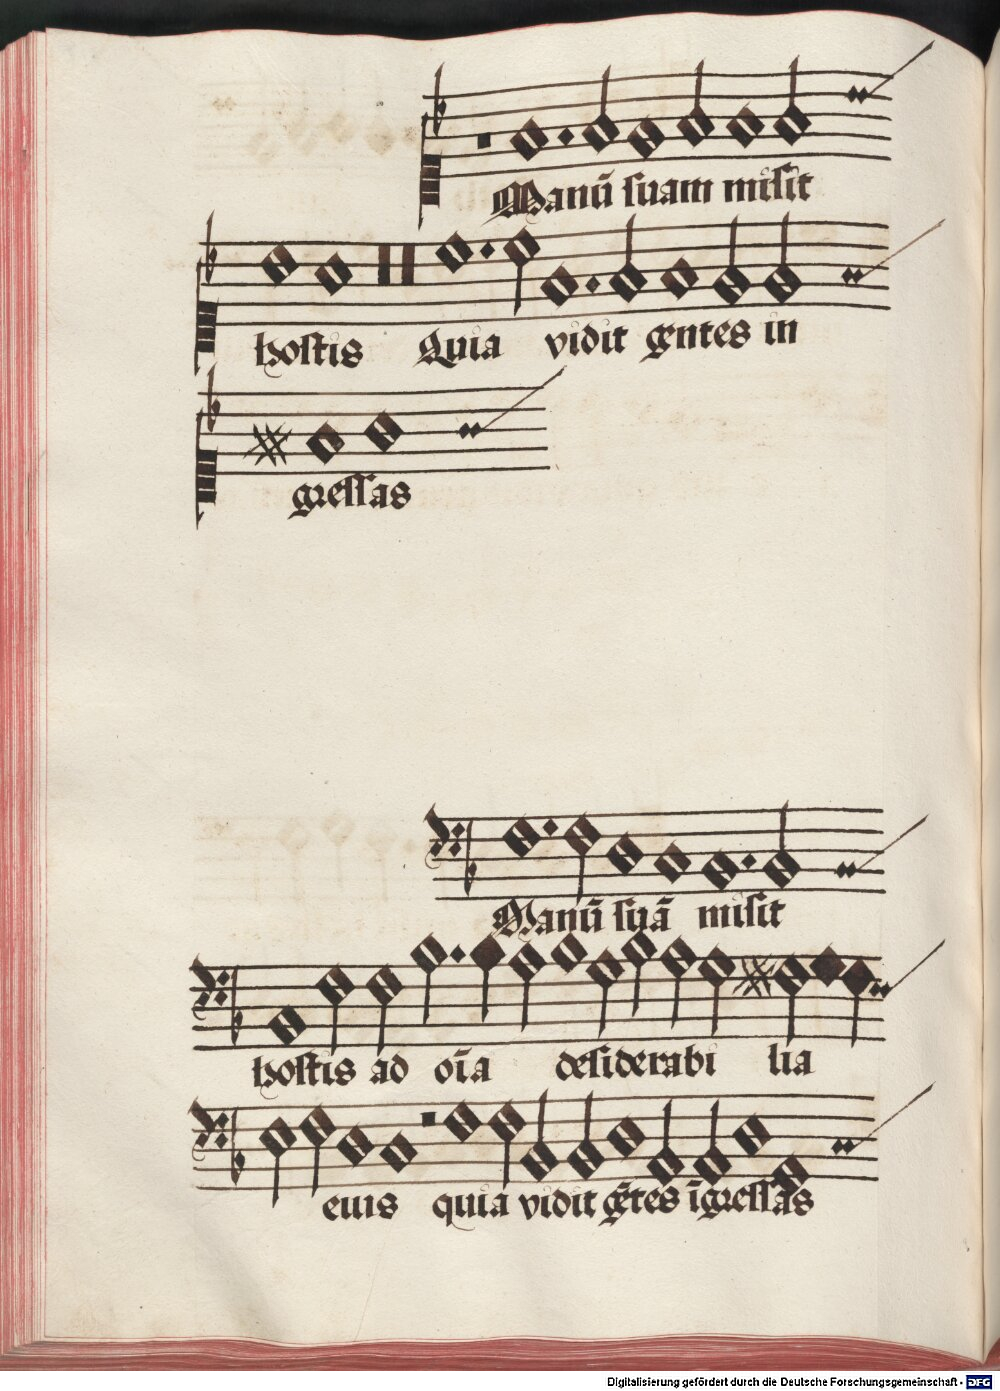 Manū suam misit
hostis Quia vidit gentes in
gressas
Manū suā misit
hostis ad oīa desiderabi lia
eius quia vidit gētes īgressas
Digitalisierung gefördert durch die Deutsche Forschungsgemeinschaft - DFG